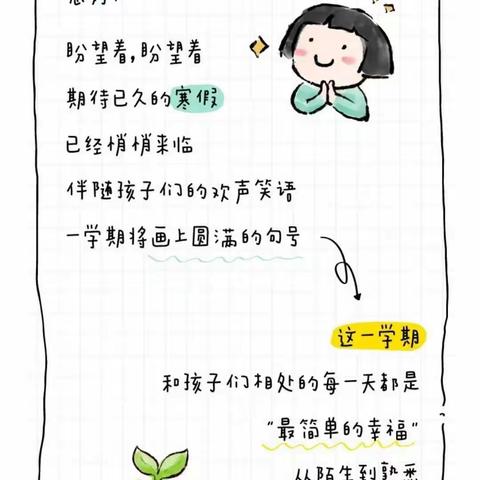 盼望着,盼望着
期待已久的寒假
已经悄悄来临
伴随孩子们的欢声笑语
一学期将画上圆满的句号
这一学期
和孩子们相处的每一天都是
"最简单的幸福"
从陌生到熟悉